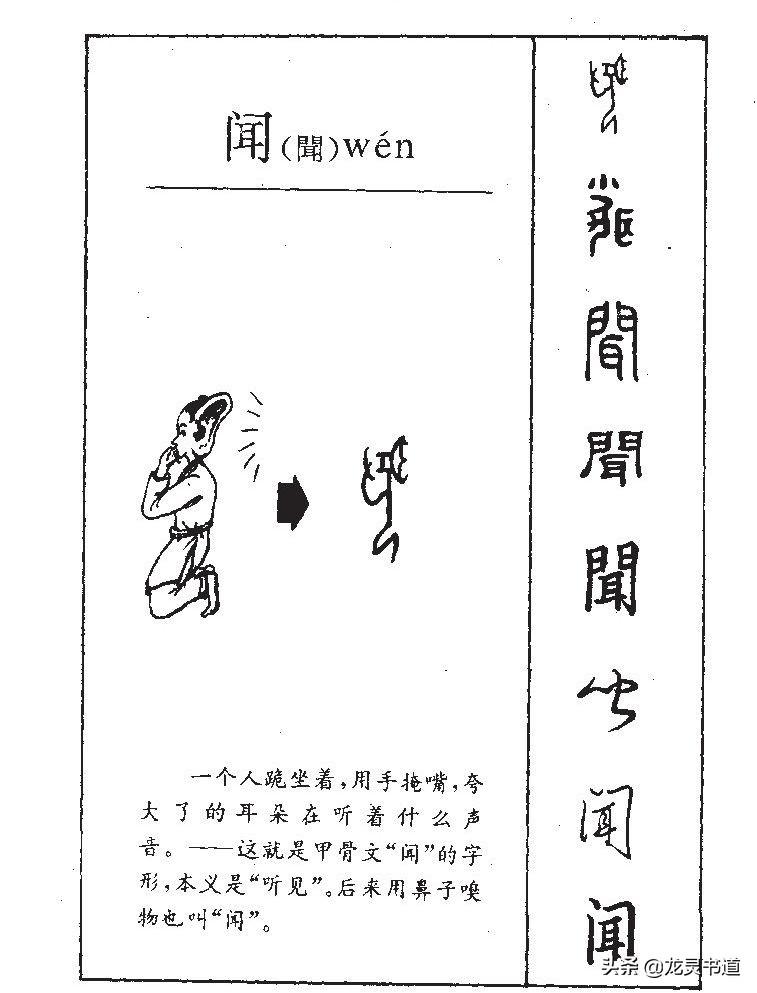 闻(聞)wén
一个人跪坐着,用手掩嘴,夸
大了的耳朵在听着什么声
音。——这就是甲骨文“闻”的字
形,本义是“听见”。后来用鼻子嗅
物也叫“闻”。
聞
聞
聞
闻
闻
头条 @龙灵书道